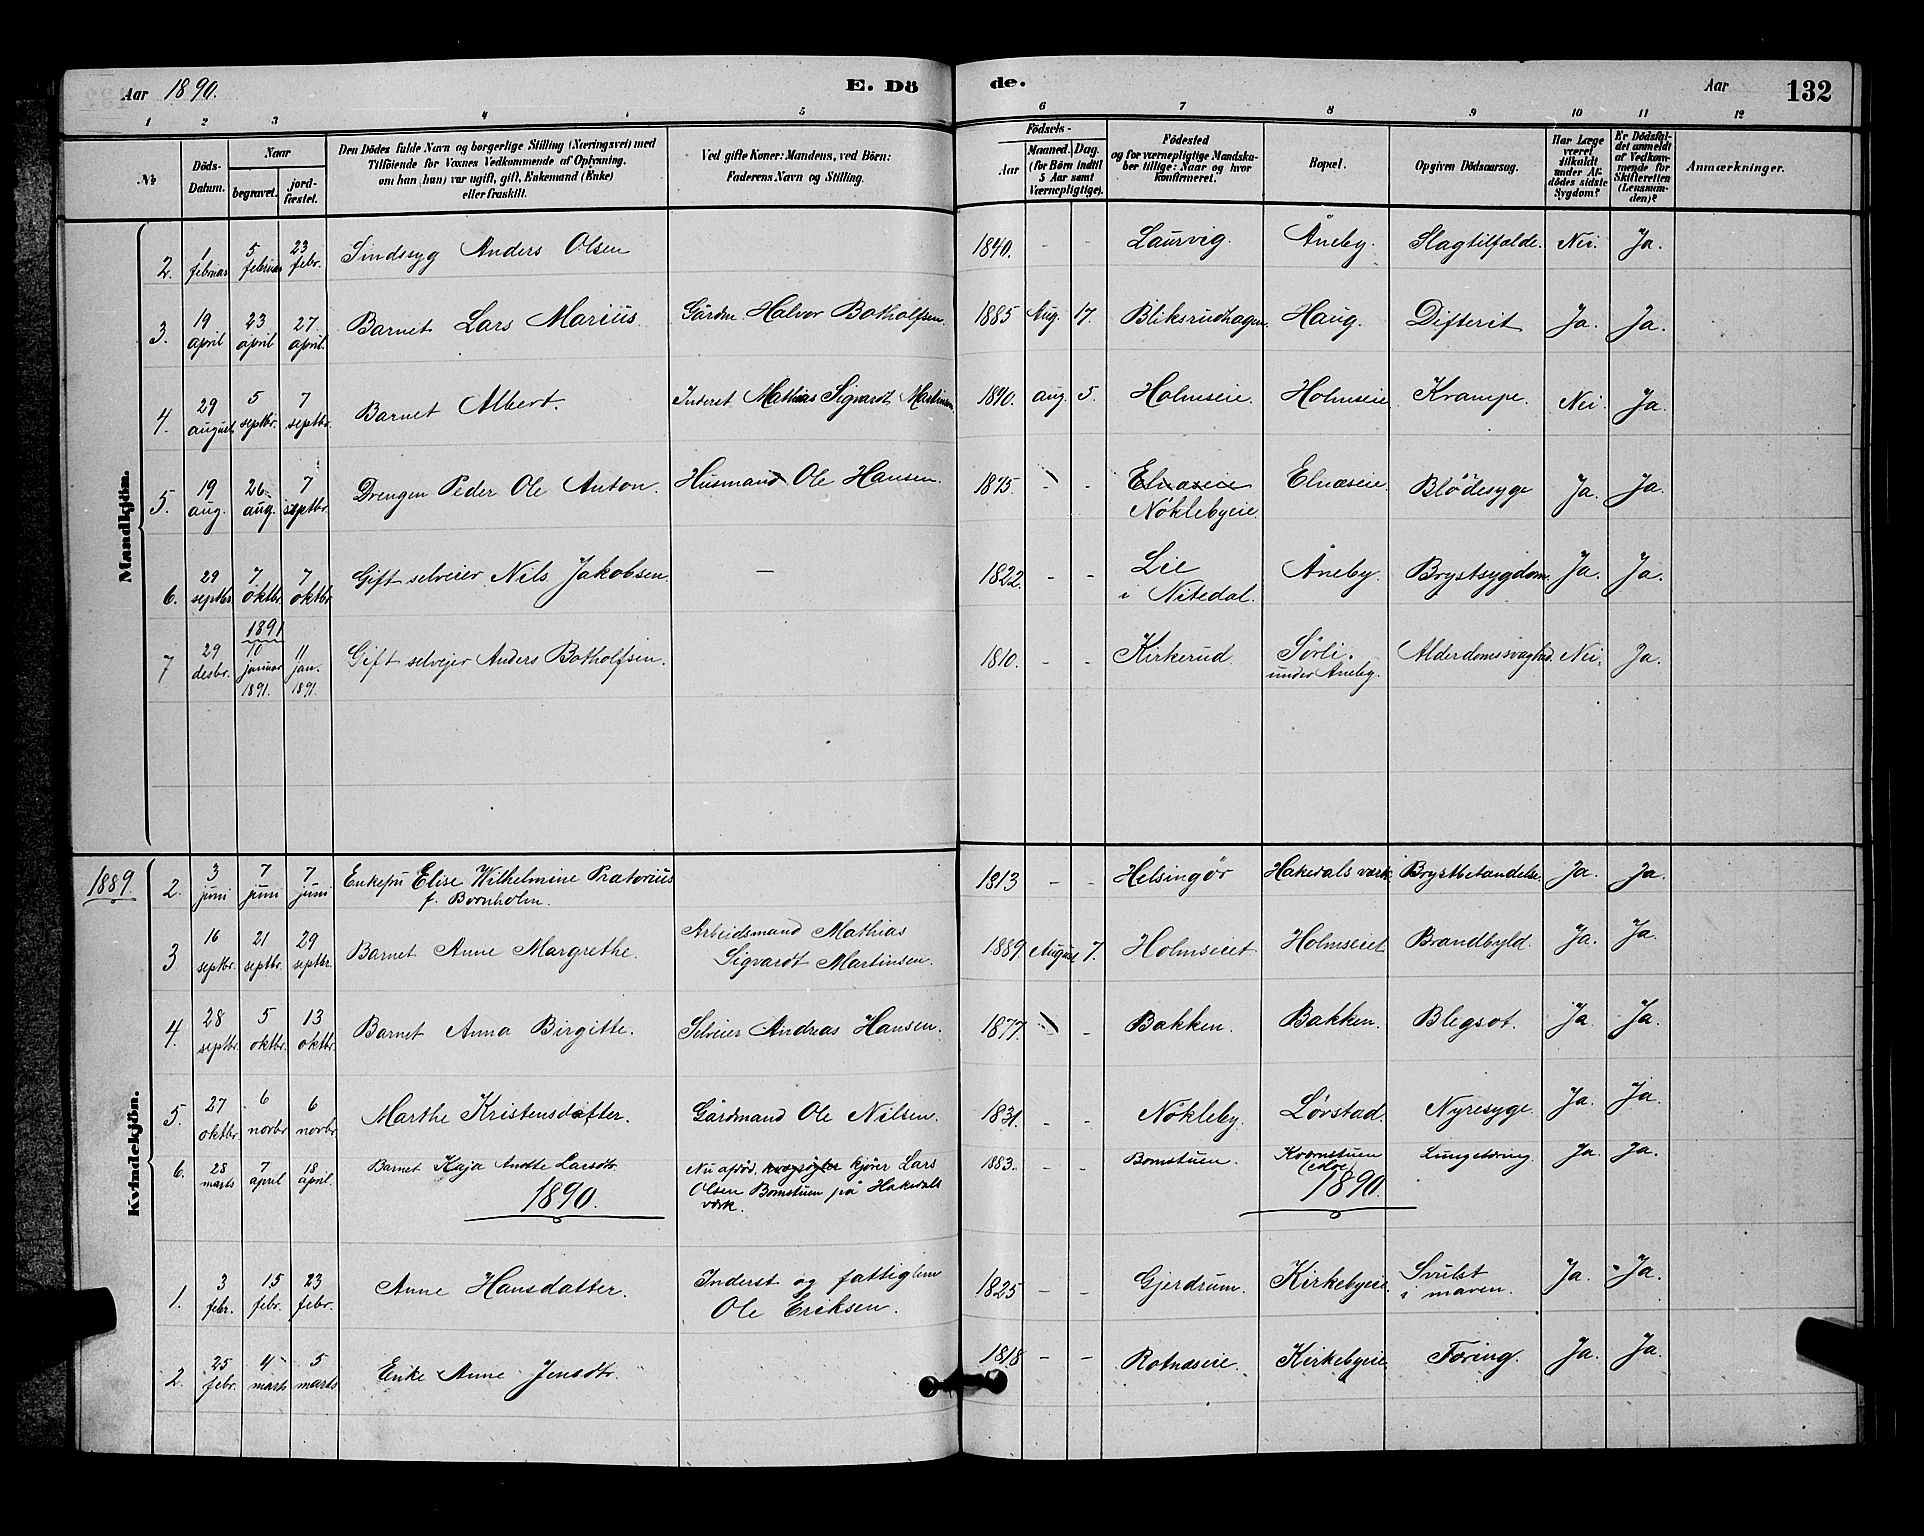 Aar 1890. E. Dö de. Aar 132
1 2 3 4 5 6 7 8 9 10 11 12
No Döds-Datum. Naar begravet. jord-fæstet. Den Dödes fulde Navn og borgerlige Stilling (Næringsvei) med Tilföiende for Voxnes Vedkommende af Oplysning, om han (hun) var ugift, gift, Enkemand (Enke) eller fraskilt. Ved gifte Koner: Mandens, ved Börn: Faderens Navn og Stilling. Födsels- Aar Maaned. Dag. (for Börn indtil 5 Aar samt Værnepligtige). Födested og for værnepligtige Mandska-ber tillige: Naar og hvor konfirmeret. Bopæl. Opgiven Dödsaarsag. Har Læge været tilkaldt under Af-dödes sidste Sygdom? Er Dödsfal-det anmeldt af Vedkom-mende for Skifteretten (Lensman-den)? Anmærkninger.
Mandkjön.
2. 1 februar 5 februar 23 febr. Sindssyg Anders Olsen 1840. - - Laurvig. Åneby. Slagtilfælde. Nei. Ja.
3. 19 april 23 april 27 april. Barnet Lars Marius. Gårdm. Halvor Botholfsen. 1885 Aug. 17. Bliksrudhagen. Haug. Difterit Ja. Ja.
4. 29 august 5 septbr. 7 septbr. Barnet Albert. Inderst Mathias Sigvardt Martinsen 1890. aug. 5. Holmseie. Holmseie Krampe. Nei. Ja.
5. 19 aug. 26 aug. 7 septbr. Drengen Peder Ole Anton. Husmand Ole Hansen. 1875. - - Elnæseie Nöklebyeie. Elnæseie Blödesyge Ja. Ja.
6. 29 septbr. 7 oktbr. 7 oktbr. Gift selveier Nils Jakobsen. — 1822. - - Lie i Nitedal. Åneby. Brystsygdom. Ja. Ja.
7 29 desbr. 1891 10 januar 1891. 11 jan. 1891. Gift selvejer Anders Botholfsen. 1810. - - Kirkerud. Sørli. under Åneby. Alderdomssvaghed. Nei. Ja.
Kvindekjön.
1889.
2. 3 juni 7 juni 7 juni Enkefru Elise Wilhelmine Prætorius f. Bornholm. 1813 - - Helsingør Hakedals værk Brystbetændelse. Ja. Ja.
3 16 septbr. 21 septbr. 29 septbr. Barnet Anne Margrethe. Arbeidsmand Mathias Sigvardt Martinsen. 1889. August 7. Holmseiet Holmseiet Brandbyld. Ja. Ja.
4. 28 septbr. 5 oktbr. 13 oktbr. Barnet Anna Birgitte. Selveier Andreas Hansen. 1877. - - Bakken. Bakken. Blegsot. Ja. Ja.
5. 27 oktbr. 6 novbr 6 novbr. Marthe Kristensdatter. Gårdmand Ole Nilsen. 1831. - - Nökleby. Løvstad. Nyresyge. Ja. Ja.
6. 28 marts 7 april 18 april. Barnet Kaja Larsdtr. Nu afdöd, kjörer Lars Olsen Bomstuen på Hakedals værk. 1883. Bomstuen. Kværnstuen Lungetæring. Ja. Ja.
1890. 1890.
1. 3 febr. 15 febr. 23 febr. Anne Hansdatter. Inderst og fattiglem Ole Eriksen. 1825 - - Gjerdrum. Kirkebyeie. Svulst i maven. Ja. Ja.
2. 25 febr. 4 marts 5 marts Enke Anne Jensdtr. 1818 - - Rotnæseie. Kirkebyeie Tæring. Ja. Ja.